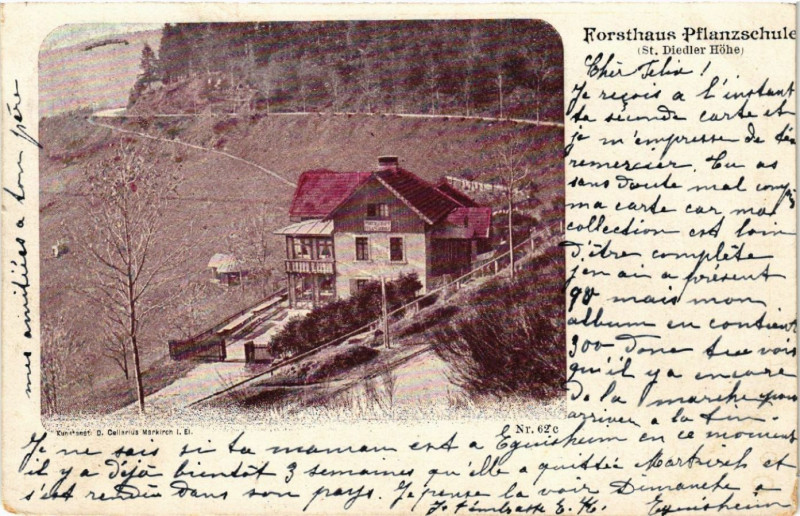 Forsthaus Pflanzschule
(St. Diedler Höhe)
Chèr Felix!
Je reçois a l'instant
ta seconde carte et
je m'empresse de t'en
remercier. Tu as
sans doute mal compris
ma carte car ma
collection est loin
d'être complète
j'en ai a présent
90 mais mon
album en contient
300 donc tu vois
qu'il y a encore
de la marche pour
arriver a la fin.
Je ne sais si ta maman est a Eguisheim en ce moment
il y a déjà bientôt 3 semaines qu'elle a quittée Markirch et
s'est rendue dans son pays. Je pense la voir Dimanche a
Eguisheim
E. K.
mes amitiés a ton père
Kunstanst. D. Cellarius Markirch i. El.
Nr. 62c